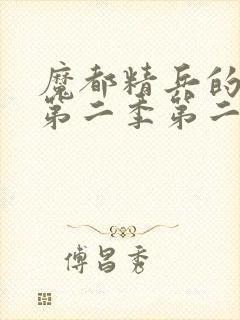 魔都精兵的
第二季第二
傅昌秀